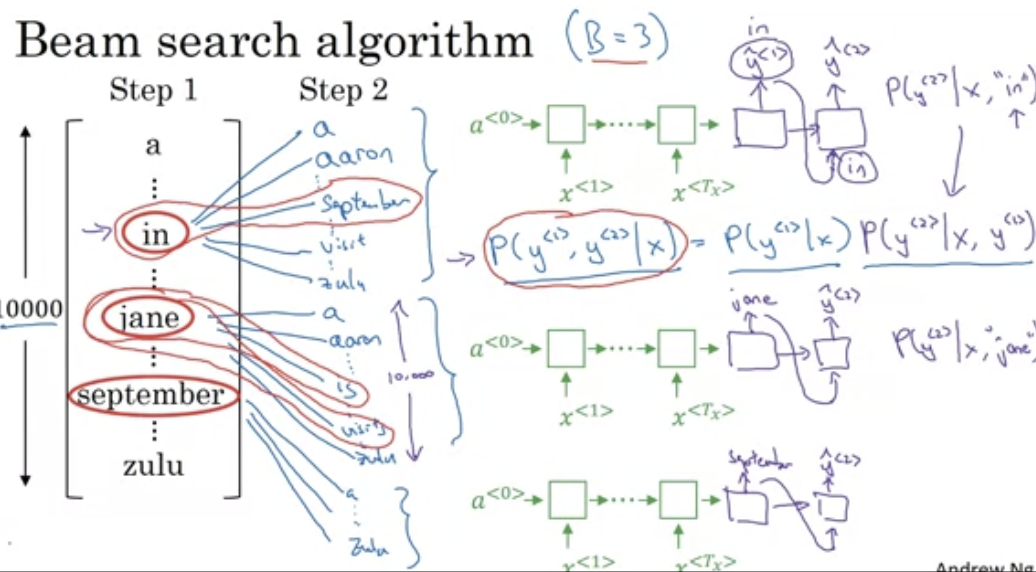 Beam search algorithm (B = 3)
Step 1
Step 2
10000
a
in
jane
september
zulu
a
aaron
September
visit
zulu
a
aaron
is
visits
zulu
10,000
a
zulu
a<0>
x<1>
x<Tx>
in
ŷ<1>
ŷ<2>
in
P(y<2>|x, "in"
P(y<1>, y<2>|x) = P(y<1>|x) P(y<2>|x, y<1>)
a<0>
x<1>
x<Tx>
jane
ŷ<2>
P(y<2>|x, "jane"
a<0>
x<1>
x<Tx>
September
ŷ<2>
Andrew Ng